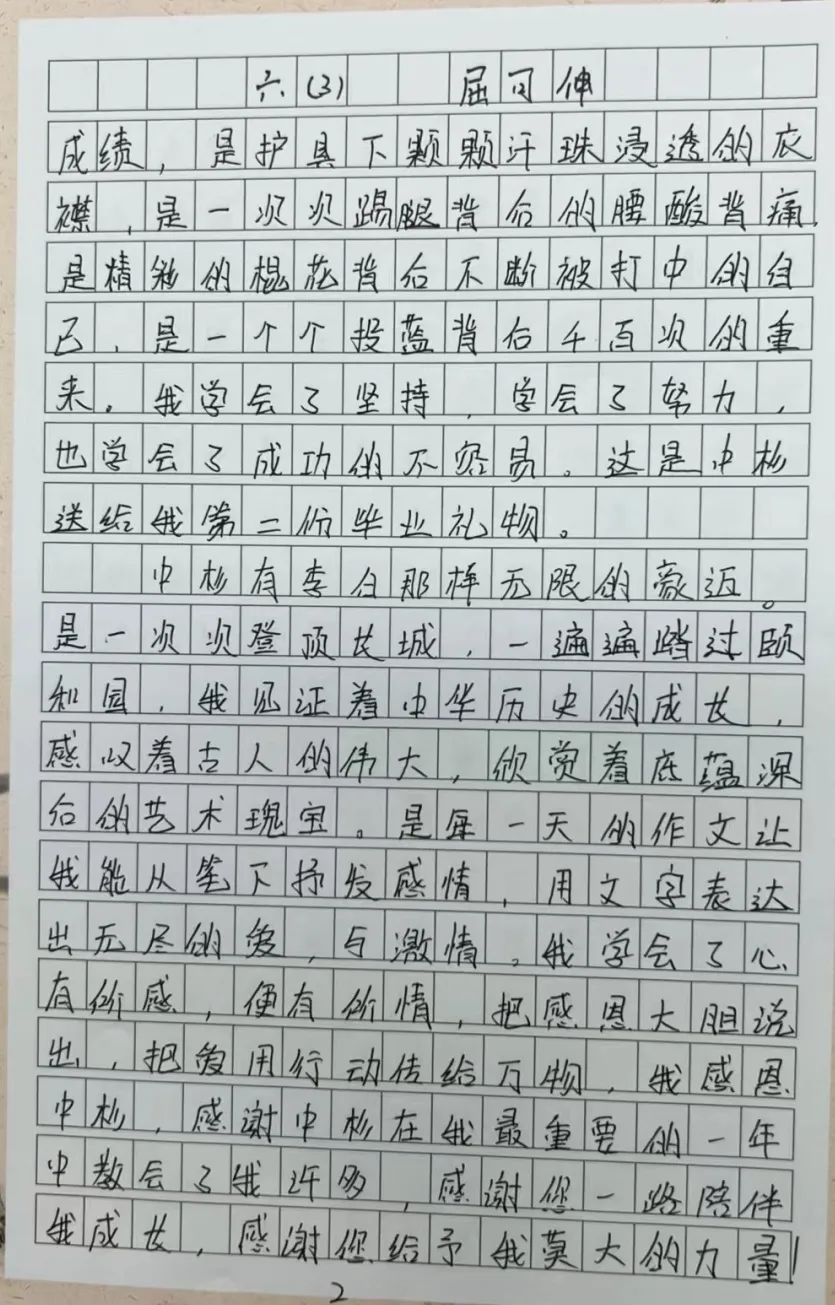 六(3) 屈可伸
成绩，是护具下颗颗汗珠浸透的衣
襟，是一次次踢腿背后的腰酸背痛，
是精彩的棍花背后不断被打中的自
己，是一个个投篮背后千百次的重
来。我学会了坚持，学会了努力，
也学会了成功的不容易。这是中杉
送给我第二份毕业礼物。
中杉有李白那样无限的豪迈。
是一次次登顶长城，一遍遍踏过颐
和园，我见证着中华历史的成长，
感叹着古人的伟大，欣赏着底蕴深
后的艺术瑰宝。是每一天的作文让
我能从笔下抒发感情，用文字表达
出无尽的爱，与激情。我学会了心
有所感，便有所情，把感恩大胆说
出，把爱用行动传给万物，我感恩
中杉，感谢中杉在我最重要的一年
中教会了我许多，感谢您一路陪伴
我成长，感谢您给予我莫大的力量！
2